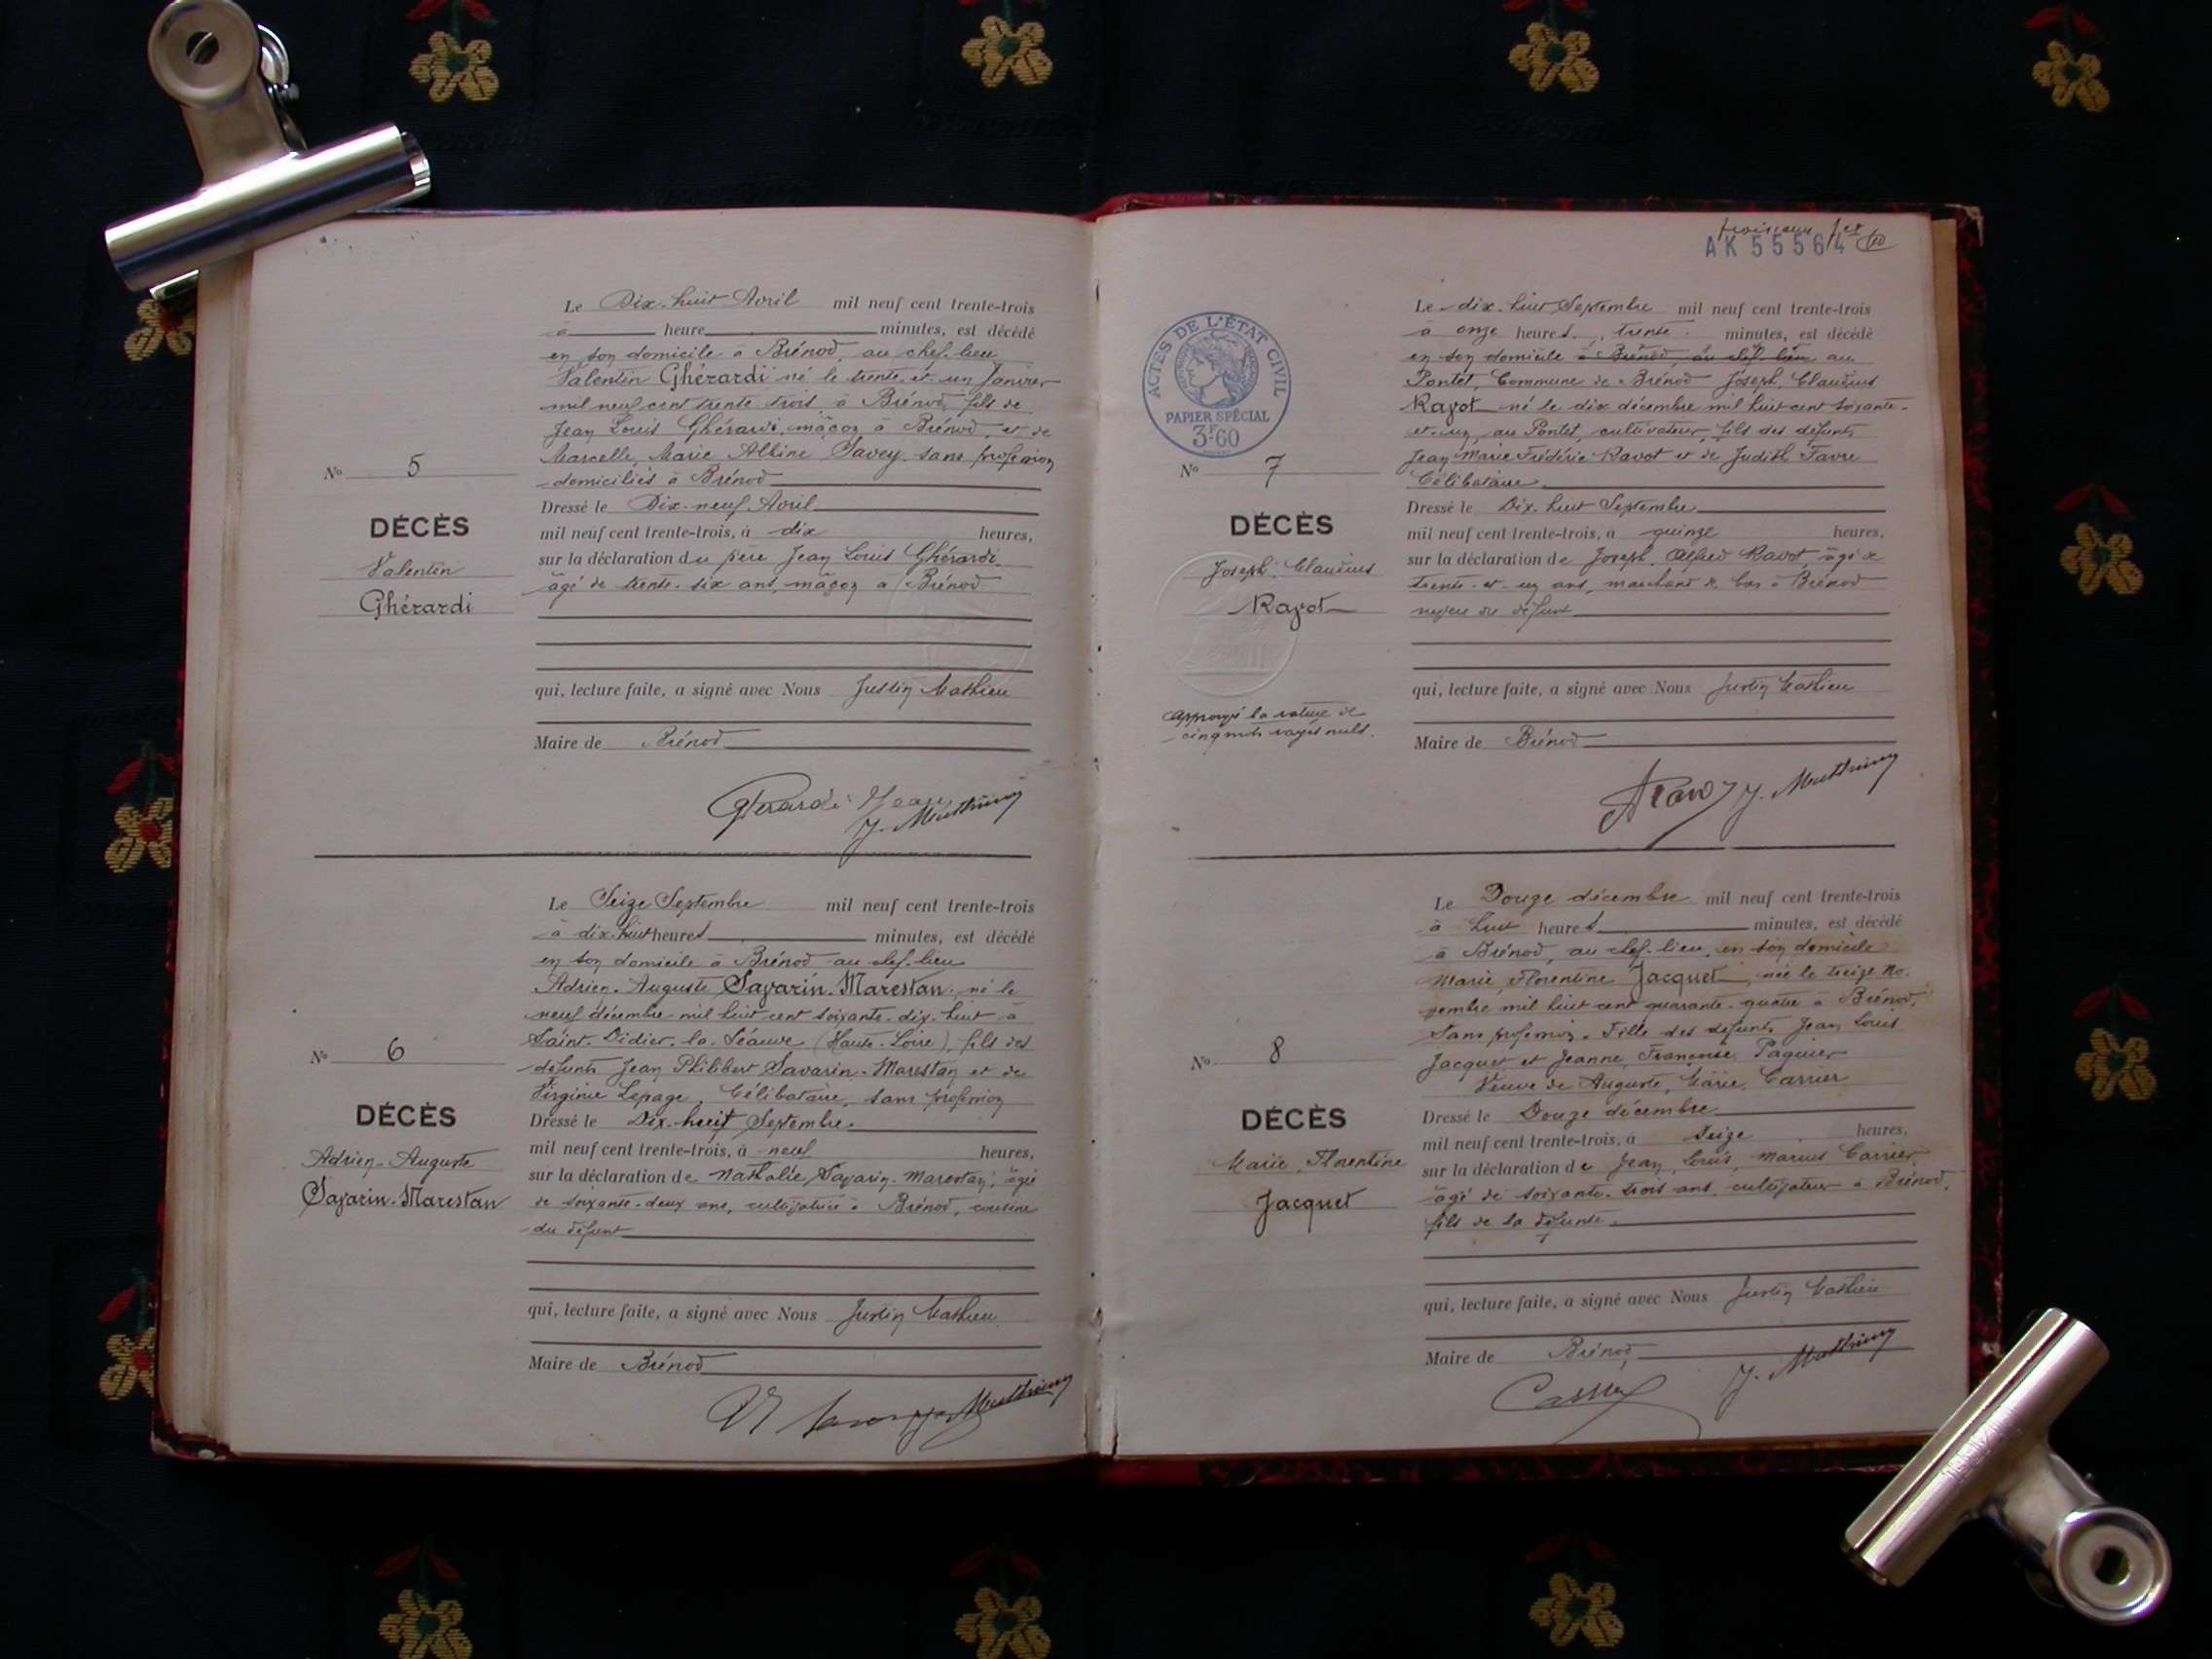 Le Dix-huit Avril mil neuf cent trente-trois
à heure minutes, est décédé
en son domicile à Brénod, au chef-lieu
Valentin Ghérardi né le trente-et-un Janvier
mil neuf cent trente-trois à Brénod, fils de
Jean Louis Ghérardi, maçon à Brénod, et de
Marcelle, Marie Albine Savey sans profession
domiciliés à Brénod
No 5
Dressé le Dix-neuf Avril
DÉCÈS
mil neuf cent trente-trois, à dix heures,
Valentin
sur la déclaration du père Jean Louis Ghérardi
Ghérardi
âgé de trente-six ans, maçon à Brénod
qui, lecture faite, a signé avec Nous Justin Mathieu
Maire de Brénod
Gherardi Jean
J. Matthieu
Le Seize Septembre mil neuf cent trente-trois
à dix-huit heures minutes, est décédé
en son domicile à Brénod au chef-lieu
Adrien-Auguste Savarin-Marestan, né le
neuf décembre mil huit cent soixante-dix-huit à
Saint-Didier-la-Séauve (Haute-Loire), fils des
défunts Jean Philibert Savarin-Marestan et de
Virginie Lepage, Célibataire, sans profession
No 6
Dressé le Dix-huit Septembre
DÉCÈS
mil neuf cent trente-trois, à neuf heures,
Adrien-Auguste
sur la déclaration de Nathalie Savarin-Marestan, âgée
Savarin-Marestan
de soixante-deux ans, cultivatrice à Brénod, cousine
du défunt
qui, lecture faite, a signé avec Nous Justin Mathieu
Maire de Brénod
J. Matthieu
AK 55564
ACTES DE L'ÉTAT CIVIL
PAPIER SPÉCIAL
3F.60
Le dix-huit Septembre mil neuf cent trente-trois
à onze heures, trente minutes, est décédé
en son domicile à Brénod, au chef-lieu au
Pontet, Commune de Brénod Joseph, Claudius
Ravot né le dix décembre mil huit cent soixante-
et-un, au Pontet, cultivateur, fils des défunts
Jean Marie Frédéric Ravot et de Judith Favre
Célibataire
No 7
Dressé le Dix-huit Septembre
DÉCÈS
mil neuf cent trente-trois, à quinze heures,
Joseph, Claudius
sur la déclaration de Joseph, Alfred Ravot, âgé de
Ravot
trente-et-un ans, marchand de bois à Brénod
neveu du défunt
qui, lecture faite, a signé avec Nous Justin Mathieu
Approuvé la rature de
cinq mots rayés nuls.
Maire de Brénod
J. Matthieu
Le Douze décembre mil neuf cent trente-trois
à huit heures minutes, est décédé
à Brénod, au chef-lieu, en son domicile
Marie, Florentine Jacquet, née le treize No-
vembre mil huit cent quarante-quatre à Brénod,
Sans profession. Fille des défunts Jean Louis
Jacquet et Jeanne, Françoise Paquier
Veuve de Auguste, Marie, Carrier
No 8
Dressé le Douze décembre
DÉCÈS
mil neuf cent trente-trois, à Seize heures,
Marie, Florentine
sur la déclaration de Jean, Louis, Marius Carrier,
Jacquet
âgé de soixante-trois ans, cultivateur à Brénod,
fils de la défunte.
qui, lecture faite, a signé avec Nous Justin Mathieu
Maire de Brénod,
J. Matthieu